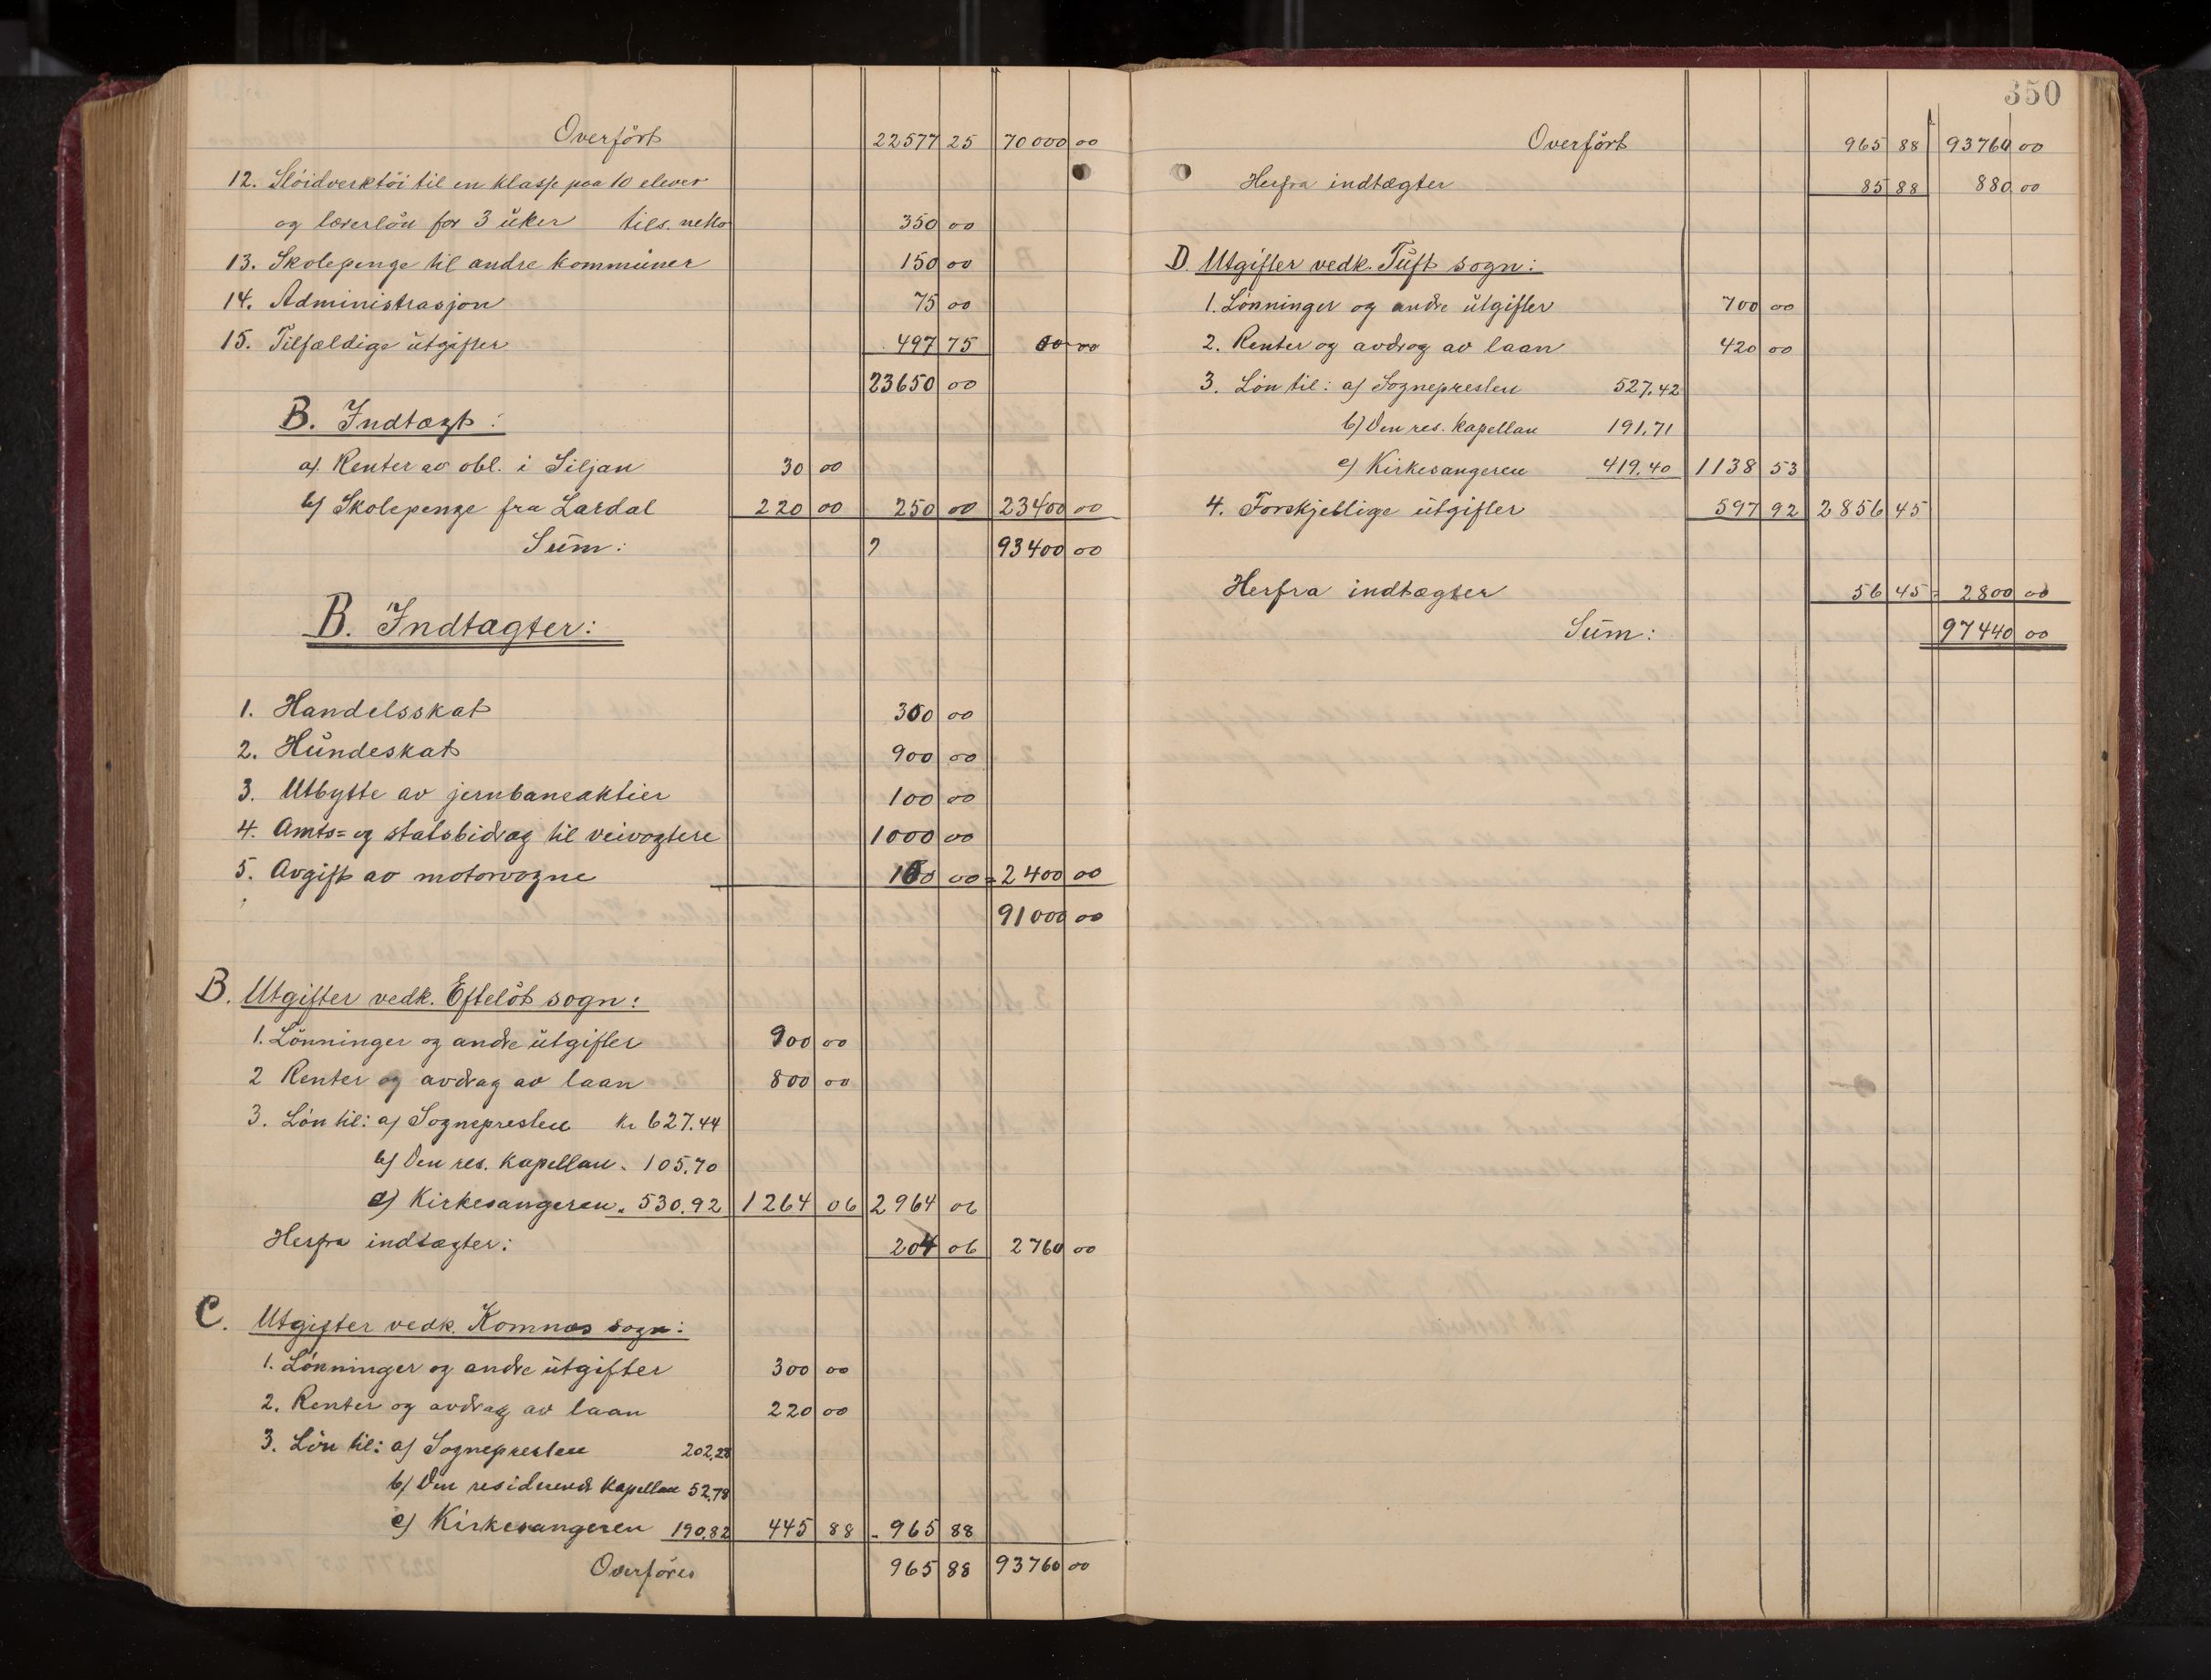 Overført 22577 25 70000 00
12. Slöidverktöi til en klasse paa 10 elever
og lærerlön for 3 uker tils. netto 350 00
13. Skolepenge til andre kommuner 150 00
14. Administrasjon 75 00
15. Tilfældige utgifter 497 75
23650 00
B. Indtægt:
a). Renter av obl. i Siljan 30 00
b) Skolepenge fra Lardal 220 00 250 00 23400 00
Sum: 93400 00
B. Indtægter:
1. Handelsskat 300 00
2. Hundeskat 900 00
3. Utbytte av jernbaneaktier 100 00
4. Amts= og statsbidrag til veivogtere 1000 00
5. Avgift av motorvogne 100 00 = 2400 00
91000 00
B. Utgifter vedk. Efteløt sogn:
1. Lönninger og andre utgifter 900 00
2 Renter og avdrag av laan 800 00
3. Lön til: a) Sognepresten kr 627.44
b) Den res. kapellan „ 105.70
c) Kirkesangeren „ 530.92 1264 06 2964 06
Herfra indtægter: 204 06 2760 00
C. Utgifter vedk. Komnes sogn:
1. Lönninger og andre utgifter 300 00
2. Renter og avdrag av laan 220 00
3. Lön til: a) Sognepresten 202,28
b) Den residerende kapellan 52,78
c) Kirkesangeren 190,82 445 88 - 965 88
Overføres 965 88 93760 00
350
Overført 965 88 93760 00
Herfra indtægter 85 88 880 00
D. Utgifter vedk. Tuft sogn:
1. Lönninger og andre utgifter 700 00
2. Renter og avdrag av laan 420 00
3. Lön til: a) Sognepresten 527.42
b) Den res. kapellan 191.71
c) Kirkesangeren 419.40 1138 53
4. Forskjellige utgifter 597 92 2856 45
Herfra indtægter 56 45 = 2800 00
Sum: 97440 00